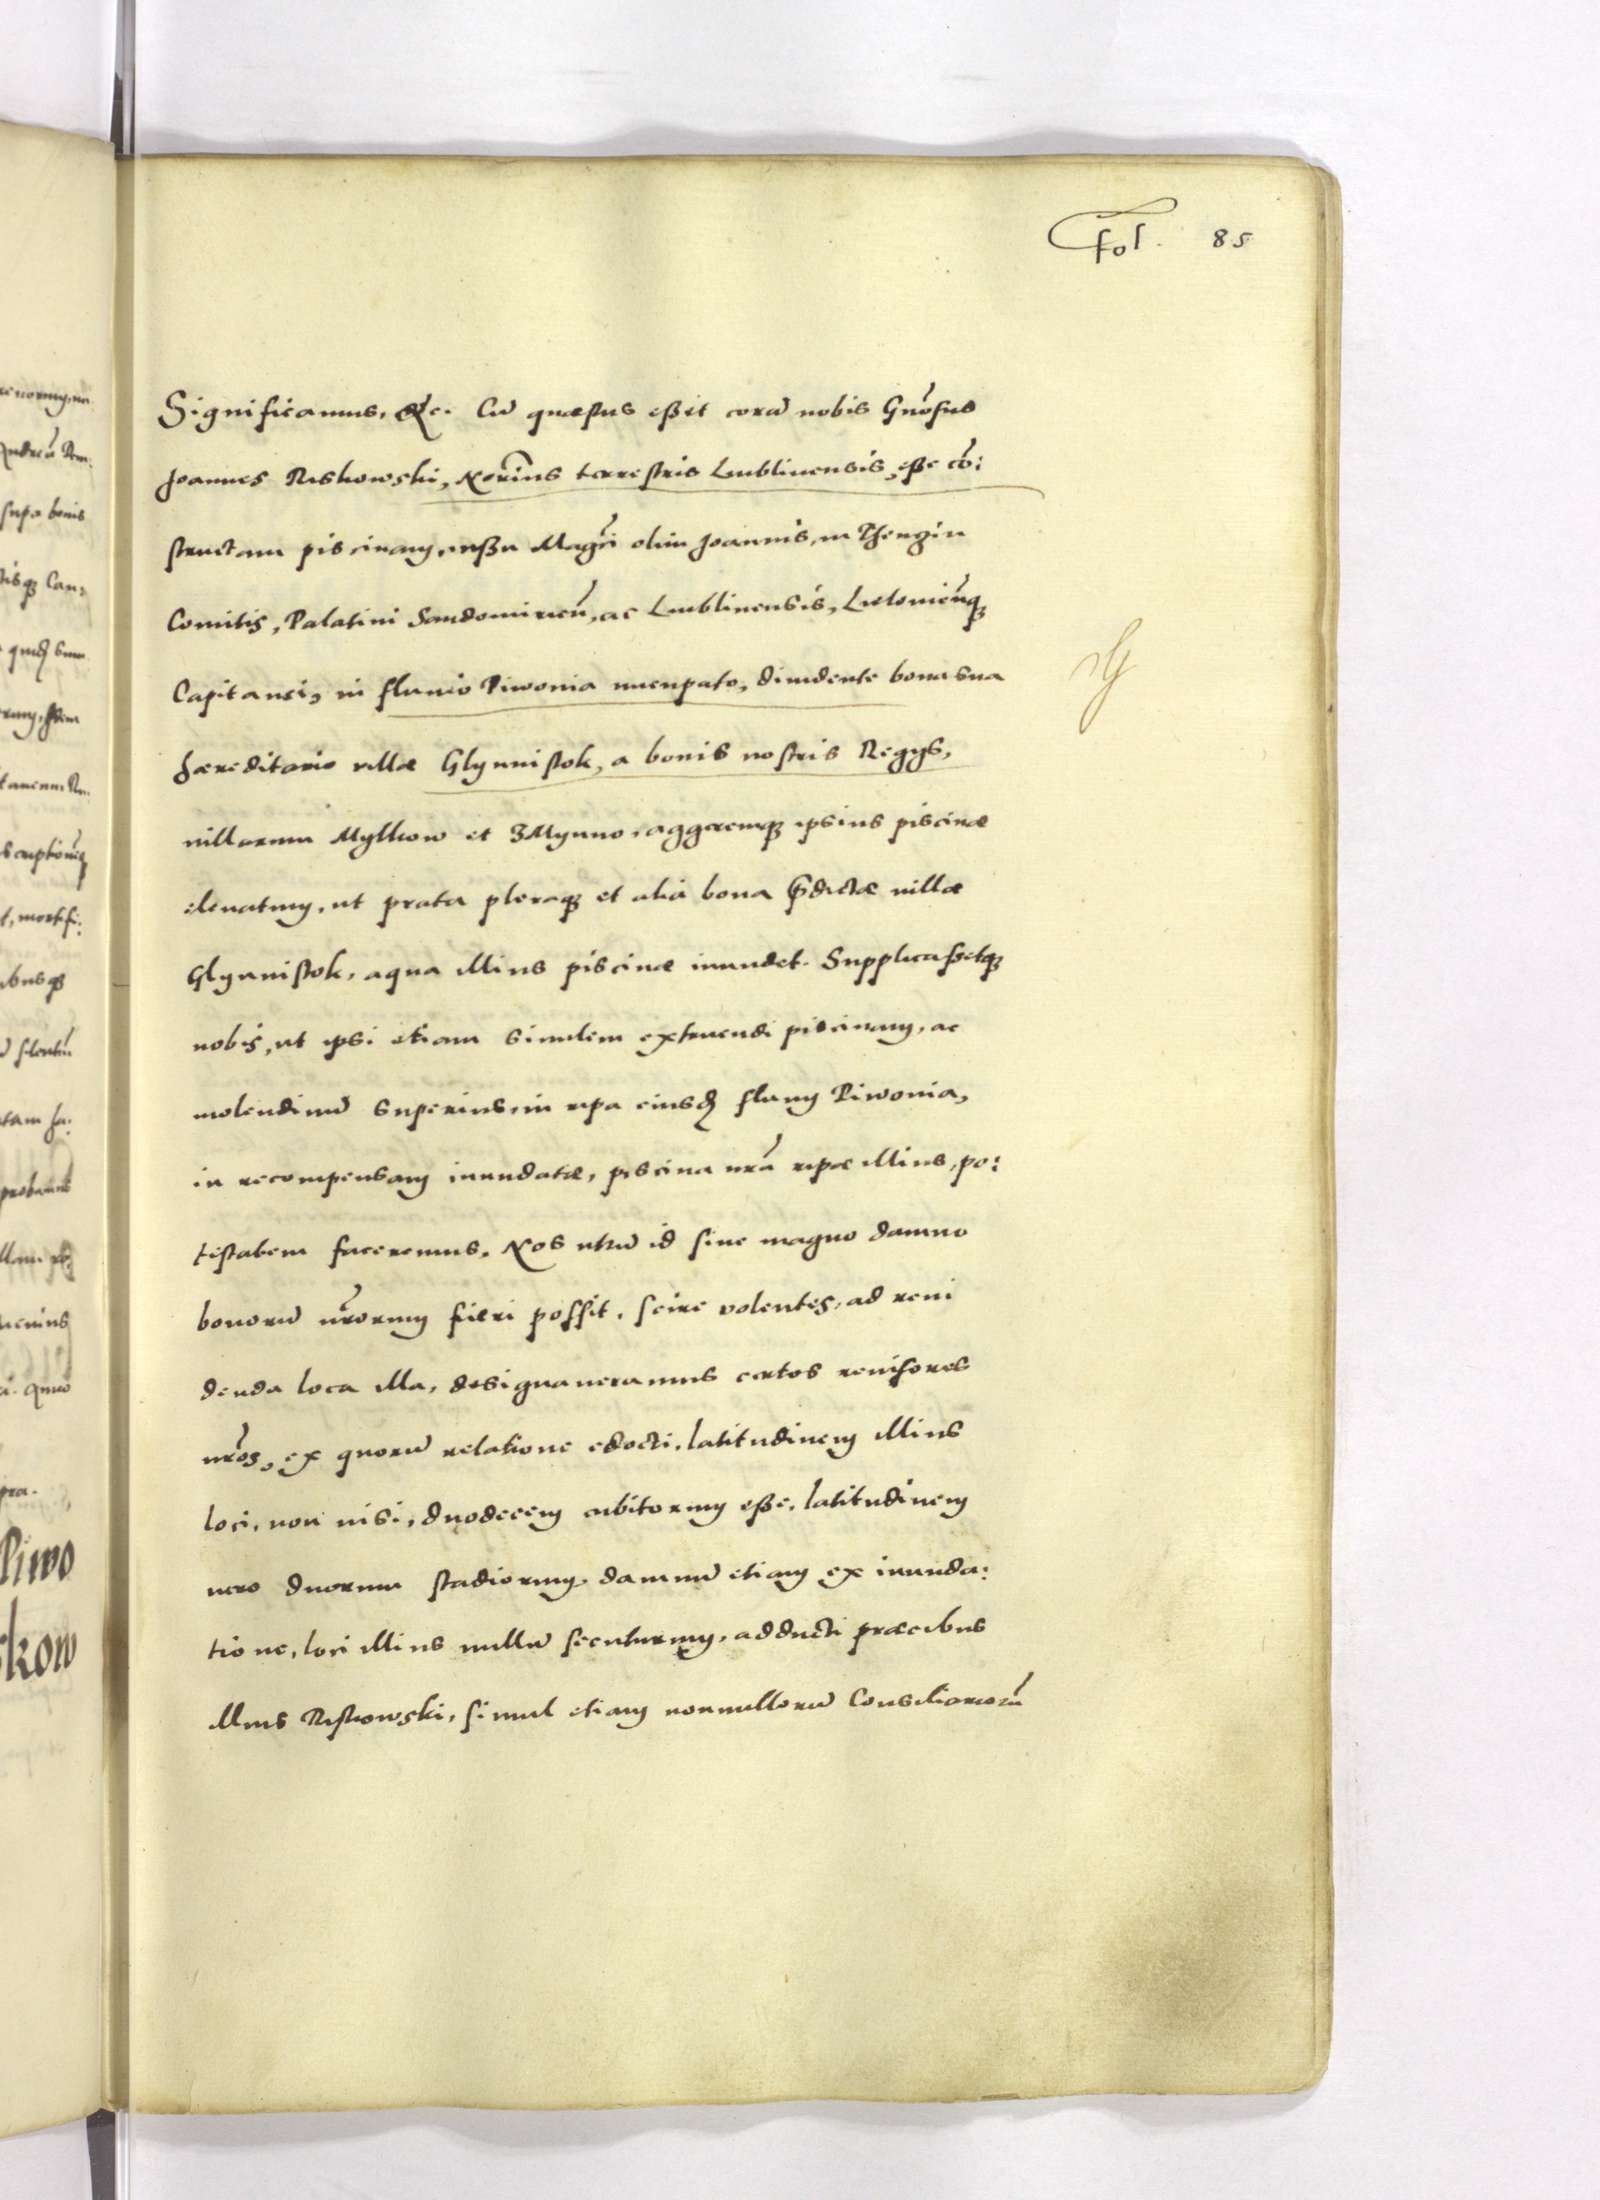 Fol. 85
Significamus, &c. Cū quæstus eßet corā nobis Gnōsus
Joannes Riskowski, Norīus terrestris Lublinensis, eße cō:
structam piscinam, iußu Magcī olim Joannis, in Thenzin
Comitis, Palatini Sandomirien̄, ac Lublinensis, Lelovien̄q3
Capitanei, in fluvio Piwonia nuncpato, dividente bona sua
hæreditario villæ Glynnistok, a bonis nostris Regijs,
villarum Mylkow et Zmynno, aggeremq3 ipsius piscinæ
elevatum, ut prata pleraq3 et alia bona p̄dictæ villæ
Glynnistok, aqua illius piscinæ inundet. Supplicaßetq3
nobis, ut ipsi etiam similem extruendi piscinam, ac
molendinū superius, in ripa eiusd fluvij Piwonia,
in recompensam inundatæ, piscina nrā ripæ illius, po:
testatem faceremus. Nos utrū id sine magno damno
bonorū nrōrum fieri possit, scire volentes, ad revi
denda loca illa, designaveramus certos revisores
nrōs, ex quorū relatione edocti, latitudinem illius
loci, non nisi, duodecem cubitorum eße, latitudinem
vero duorum stadiorum, damnū etiam ex inunda:
tione, loci illius nullū secuturum, adducti præcibus
illius Riskowski, simul etiam nonnullorū Consiliariorū